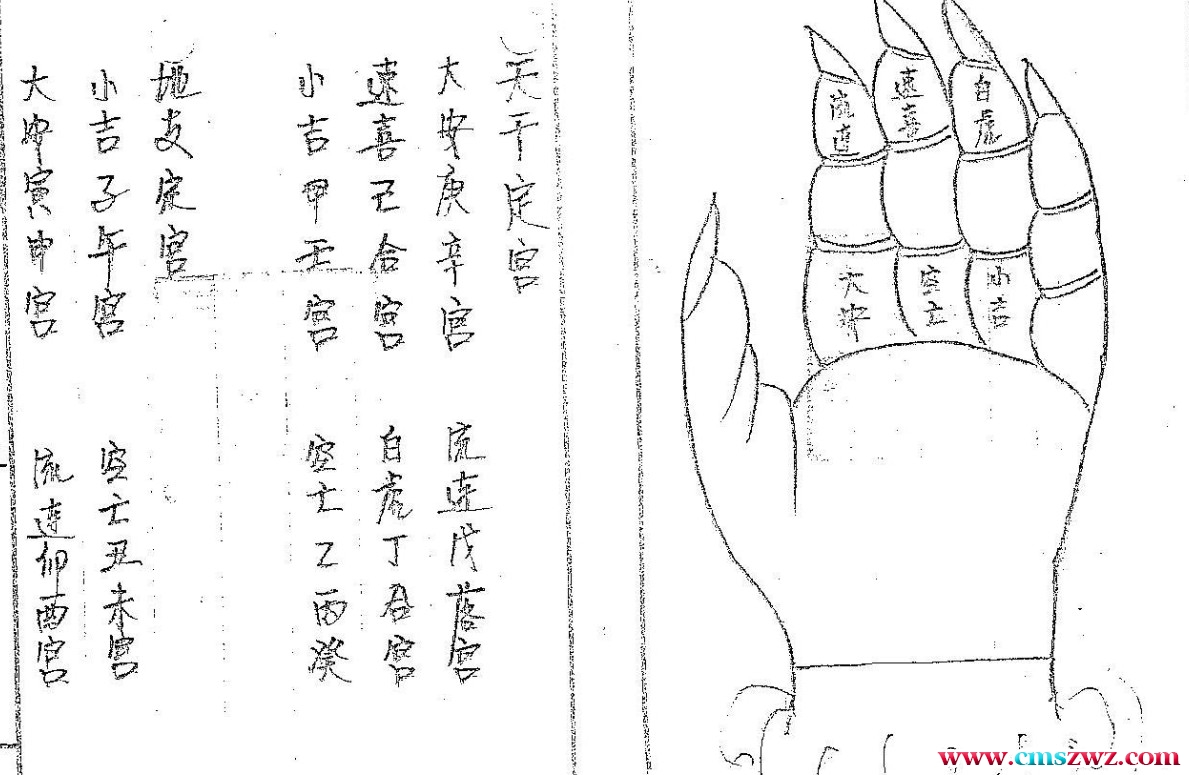 白虎
速喜
流连
小吉
空亡
大安
天干定宫
大安庚辛宫 流连戊落宫
速喜己合宫 白虎丁宫
小吉甲壬宫 空亡乙丙癸
地支定宫
小吉子午宫 空亡丑未宫
大安寅申宫 流连卯酉宫
www.cmszwz.com